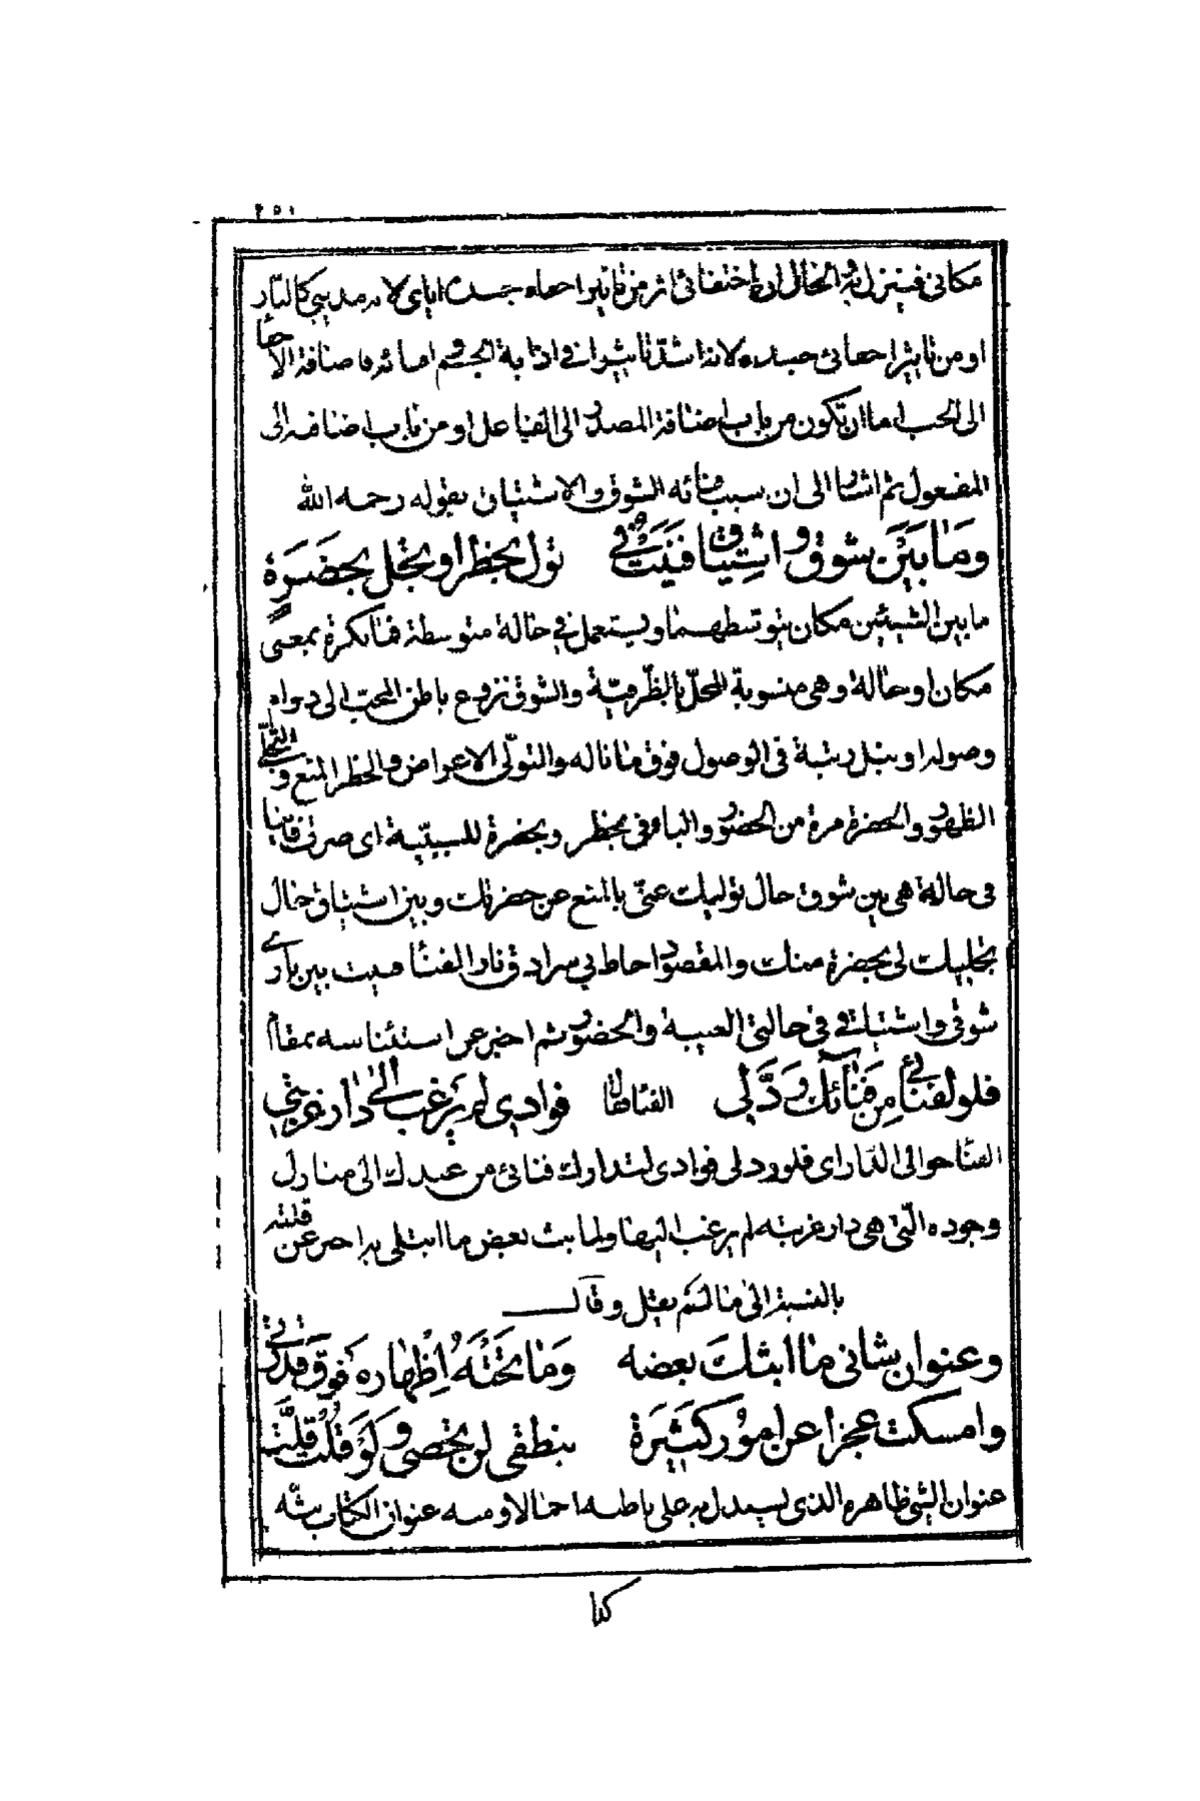 مكانى فيتنزل به والحال ان اختفائى اثر من تاثير احفاء جسدى اياى لانه مذيبى كالنار
او من تاثير احفائى جسده لانه اشد تاثيرا فى اذابة الجسم اصائه فاضافة الاحفا
الى الحب اما ان تكون من باب اضافة المصدر الى الفاعل او من باب اضافه الى
المفعول ثم اشار الى ان سبب فنائه الشوق والاشتياق بقوله رحمه الله
وَمَا بَيْنَ شوق واشتياق فَنَيْتُ فى تولٍ بحظرٍ او تجلٍ بحضرةٍ
ما بين الشيئين مكان يتوسطهما ويستعمل فى حالة متوسطة فما نكرة بمعنى
مكان او حالة وهى منسوبة المحل بالظرفية والشوق نزوع باطن المحب الى دوام
وصوله او نيل رتبة فى الوصول فوق ما ناله والتولى الاعراض والحظر المنع والتجلى
الظهور والحضرة مرة من الحضور والباء فى بحظر وبحضرة للسببية اى صرت فانيا
فى حالة هى بين شوق حال توليك عنى بالمنع عن حضرتك وبين اشتياق حال
تجليك لى بحضرة منك والمقصود احاط بى سرادق نار الفناء فبت بين نارى
شوقى واشتياقى فى حالتى الغيبة والحضور ثم اخبر عن استئناسه بمقام
فلو لفنائى مِن فَنَائِك رُدَّ لى الفنا فقال فوادى لم يرغب الى دار غربتى
الفنا حوالى الدار اى فلو رد لى فوادى لتدارك فنائى من عبدك الى منازل
وجوده التى هى دار غربته لم يرغب اليها ولما بث بعض ما ابتلى به اخبر عن قلته
بالنسبة الى ما لم يقل وقال
وعنوان شانى ما ابثك بعضه وَمَا تحتَهُ اِظهاره فوق قدرتى
وامسكت عجزا عن امور كَثِيرَةٍ بنطقى لن تحصى وَلَوْ قُلْتُ قَلَّتِ
عنوان الشى ظاهره الذى يستدل به على باطنه اجمالا ومنه عنوان الكتاب بثه